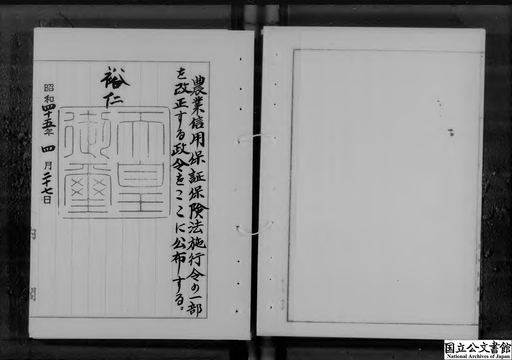 農業信用保証保険法施行令の一部
を改正する政令をここに公布する。
裕仁
天皇
御璽
昭和四十五年四月二十七日
内閣
国立公文書館
National Archives of Japan